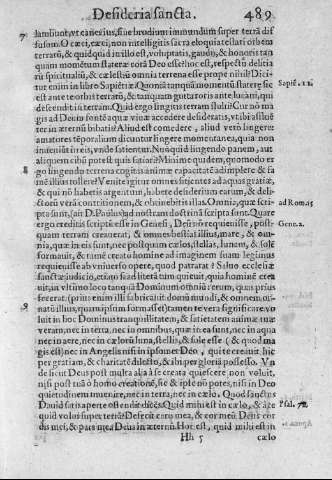 Desideria sancta. 489
7 lambunt, vt canes ius, siue brodium immundum super terrã dif
fusam. O cæci, cæci, non intelligitis sacra eloquia testari orbem
terrarũ, & quidquid in illo est, voluptatis, gaudij, & honoris tan
quam momentum stateræ corã Deo esse: hoc est, respectu delitia
rũ spiritualiũ, & cælestiũ omnia terrena esse prope nihil? Dici
tur enim in libro Sapiẽtiæ: Quoniã tanquã momentũ stateræ sic Sapiẽ. 11.
est ante te orbis terrarũ, & tanquam gutta roris antelucani, qui
descendit in terram. Quid ergo lingitis terram stulti? Cur nõ ma
gis ad Deum fontẽ aquæ viuæ accedere desideratis, vt ibi a siliẽ
ter in æternũ bibatis? Aliud est comedere, aliud verò lingere:
amatores tẽporalium dicuntur lingere momentanea, quia non
inueniũt in eis, vnde satientur. Nunquid lingendo panem, aut
aliquem cibũ potest quis satiari? Minimè quidem, quomodo er
8 go lingendo terrena cogitis animæ capacitatẽ adimplere & fa
mẽ illius tollere? Venite igitur omnes sitientes ad aquas gratiæ,
& qui nõ habetis argentum, habete desiderium earum, & dele-
ctorũ verã contritionem, & obtinebitis illas. Omnia, quæ scri-
pta sunt, (ait D. Paulus) ad nostram doctrinã scripta sunt. Quare ad Rom. 15
ergo creditis scriptũ esse in Genesi, Deũ nõ requieuisse, post- Gene. 2.
quam terram creauerat, & omnes bestias illius, mare, & om-
nia, quæ in eis sunt: nec postquam cælos, stellas, lunem, & solẽ
formauit, & tunc creato homine ad imaginem suam legimus
requieuisse ab vniuerso opere, quod patrarat? Salus ecclesiæ
sanctæ iudicio, etiam si ad literã tum quieuit, quia homine crea
uit, in vltimo loco tanquã Dominum omniũ rerum, quas prius
9 fecerat (prius enim illi fabricauit domũ mundi, & omnem or-
natũ illius, quam ipsum formasset) tamen re vera significare vo
luit in hoc Diuinam tranquillitatem, & satietatem animæ nus-
quam, nec in terra, nec in omnibus, quæ in ea sunt, nec in aqua
nec in aere, nec in cælo tũ luna, stellis, & sole esse (& quod ma
gis est) nec in Angelis nisi in ipsomet Deo, qui te creauit hic
per gratiam, & charitatẽ dilecto, & ibi per gloriã possesso. Vn
de sicut Deus post multa alia à se creata quiescere non voluit,
nisi post tuã ò homo creationẽ, sic & ipse nõ potes, nisi in Deo
quietudinem inuenire, nec in terra, nec in cælo. Quod sanctus
Dauid satis apertè ostendit dicẽs: Quid mihi est in cælo, & à te Psal. 72.
quid volui super terrã? Defecit caro mea, & cor meũ Deus cor
dis mei, & pars mea Deus in æternũ. Hoc est, quid mihi est in
Hh 5 cælo